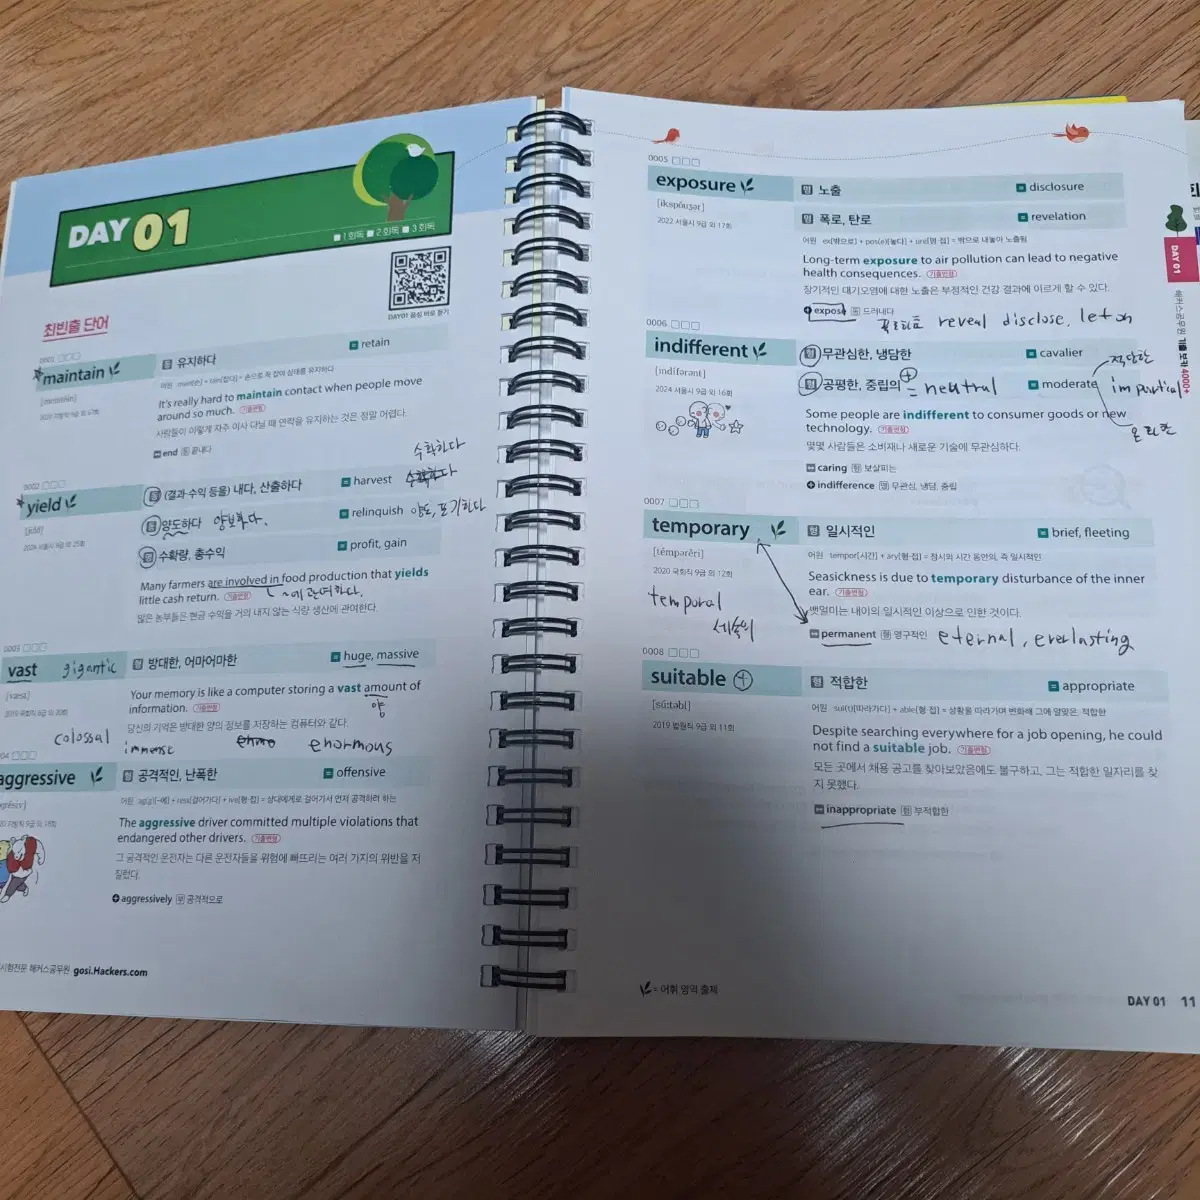 DAY 01
■ 1회독 ■ 2회독 ■ 3회독
DAY01 음성 바로 듣기
최빈출 단어
0001 □□□
maintain
유지하다
= retain
It's really hard to maintain contact when people move
around so much. 기출변형
사람들이 이렇게 자주 이사 다닐 때 연락을 유지하는 것은 정말 어렵다.
↔ end 동 끝내다
0002 □□□
yield
동 (결과·수익 등을) 내다, 산출하다
= harvest
수확하다
동 양도하다 양보하다.
= relinquish 양도, 포기하다
명 수확량, 총수익
= profit, gain
Many farmers are involved in food production that yields
little cash return. 기출변형
~에 관여하다.
많은 농부들은 현금 수익을 거의 내지 않는 식량 생산에 관여한다.
0003 □□□
vast gigantic
형 방대한, 어마어마한
= huge, massive
[væst]
Your memory is like a computer storing a vast amount of
information. 기출변형
양
당신의 기억은 방대한 양의 정보를 저장하는 컴퓨터와 같다.
colossal immense enormous
04 □□□
aggressive
형 공격적인, 난폭한
= offensive
The aggressive driver committed multiple violations that
endangered other drivers. 기출변형
그 공격적인 운전자는 다른 운전자들을 위험에 빠뜨리는 여러 가지의 위반을 저
질렀다.
+ aggressively 부 공격적으로
해커스공무원 gosi.Hackers.com
0005 □□□
exposure
명 노출
= disclosure
명 폭로, 탄로
= revelation
[ikspóuʒər]
2022 서울시 9급 외 17회
어원 ex[밖으로] + pos(e)[놓다] + ure[명·접] = 밖으로 내놓아 노출됨
Long-term exposure to air pollution can lead to negative
health consequences. 기출변형
장기적인 대기오염에 대한 노출은 부정적인 건강 결과에 이르게 할 수 있다.
+ expose 동 드러내다
reveal disclose, let on
0006 □□□
indifferent
형 무관심한, 냉담한
= cavalier
형 공평한, 중립의 = neutral
= moderate impartial
적당한
온화한
[indífərənt]
2024 서울시 9급 외 16회
Some people are indifferent to consumer goods or new
technology. 기출변형
몇몇 사람들은 소비재나 새로운 기술에 무관심하다.
↔ caring 형 보살피는
+ indifference 명 무관심, 냉담, 중립
0007 □□□
temporary
형 일시적인
= brief, fleeting
[témpərèri]
2020 국회직 9급 외 12회
어원 tempor[시간] + ary[형·접] = 정시의 시간 동안의, 즉 일시적인
Seasickness is due to temporary disturbance of the inner
ear. 기출변형
뱃멀미는 내이의 일시적인 이상으로 인한 것이다.
temporal
세속의
↔ permanent 형 영구적인 eternal, everlasting
0008 □□□
suitable
형 적합한
= appropriate
[sú:təbl]
2019 법원직 9급 외 11회
어원 suit[따라가다] + able[형·접] = 상황을 따라가며 변화해 그에 알맞은, 적합한
Despite searching everywhere for a job opening, he could
not find a suitable job. 기출변형
모든 곳에서 채용 공고를 찾아보았음에도 불구하고, 그는 적합한 일자리를 찾
지 못했다.
↔ inappropriate 형 부적합한
= 어휘 영역 출제
DAY 01 11
DAY 01
해커스공무원 기출 보카 4000+